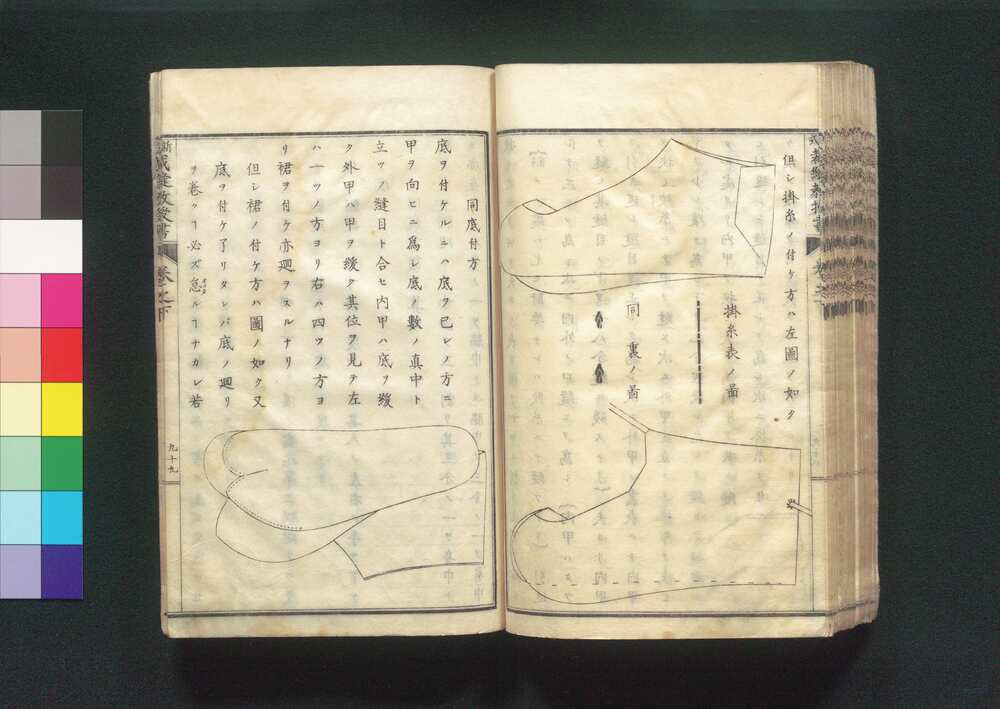 但シ掛糸ノ付ケ方ハ左圖ノ如ク
掛糸表ノ啚
同裏ノ啚
同底付方
底ヲ付ケルニハ底ヲ已レノ方ニ
甲ヲ向ヒニ爲シ底ノ數ノ真中ト
立ツノ縫目ト合セ内甲ハ底ヲ緩
ク外甲ハ甲ヲ緩ク其位ヲ見テ左
ハ一ツノ方ヨリ右ハ四ツノ方ヨ
リ裙ヲ付ケ亦廻ヲスルナリ
但シ裙ノ付ケ方ハ圖ノ如ク又
底ヲ付ケ了リタレバ底ノ廻リ
ヲ卷クヿ必ズ怠ルヿナカレ若
九十九